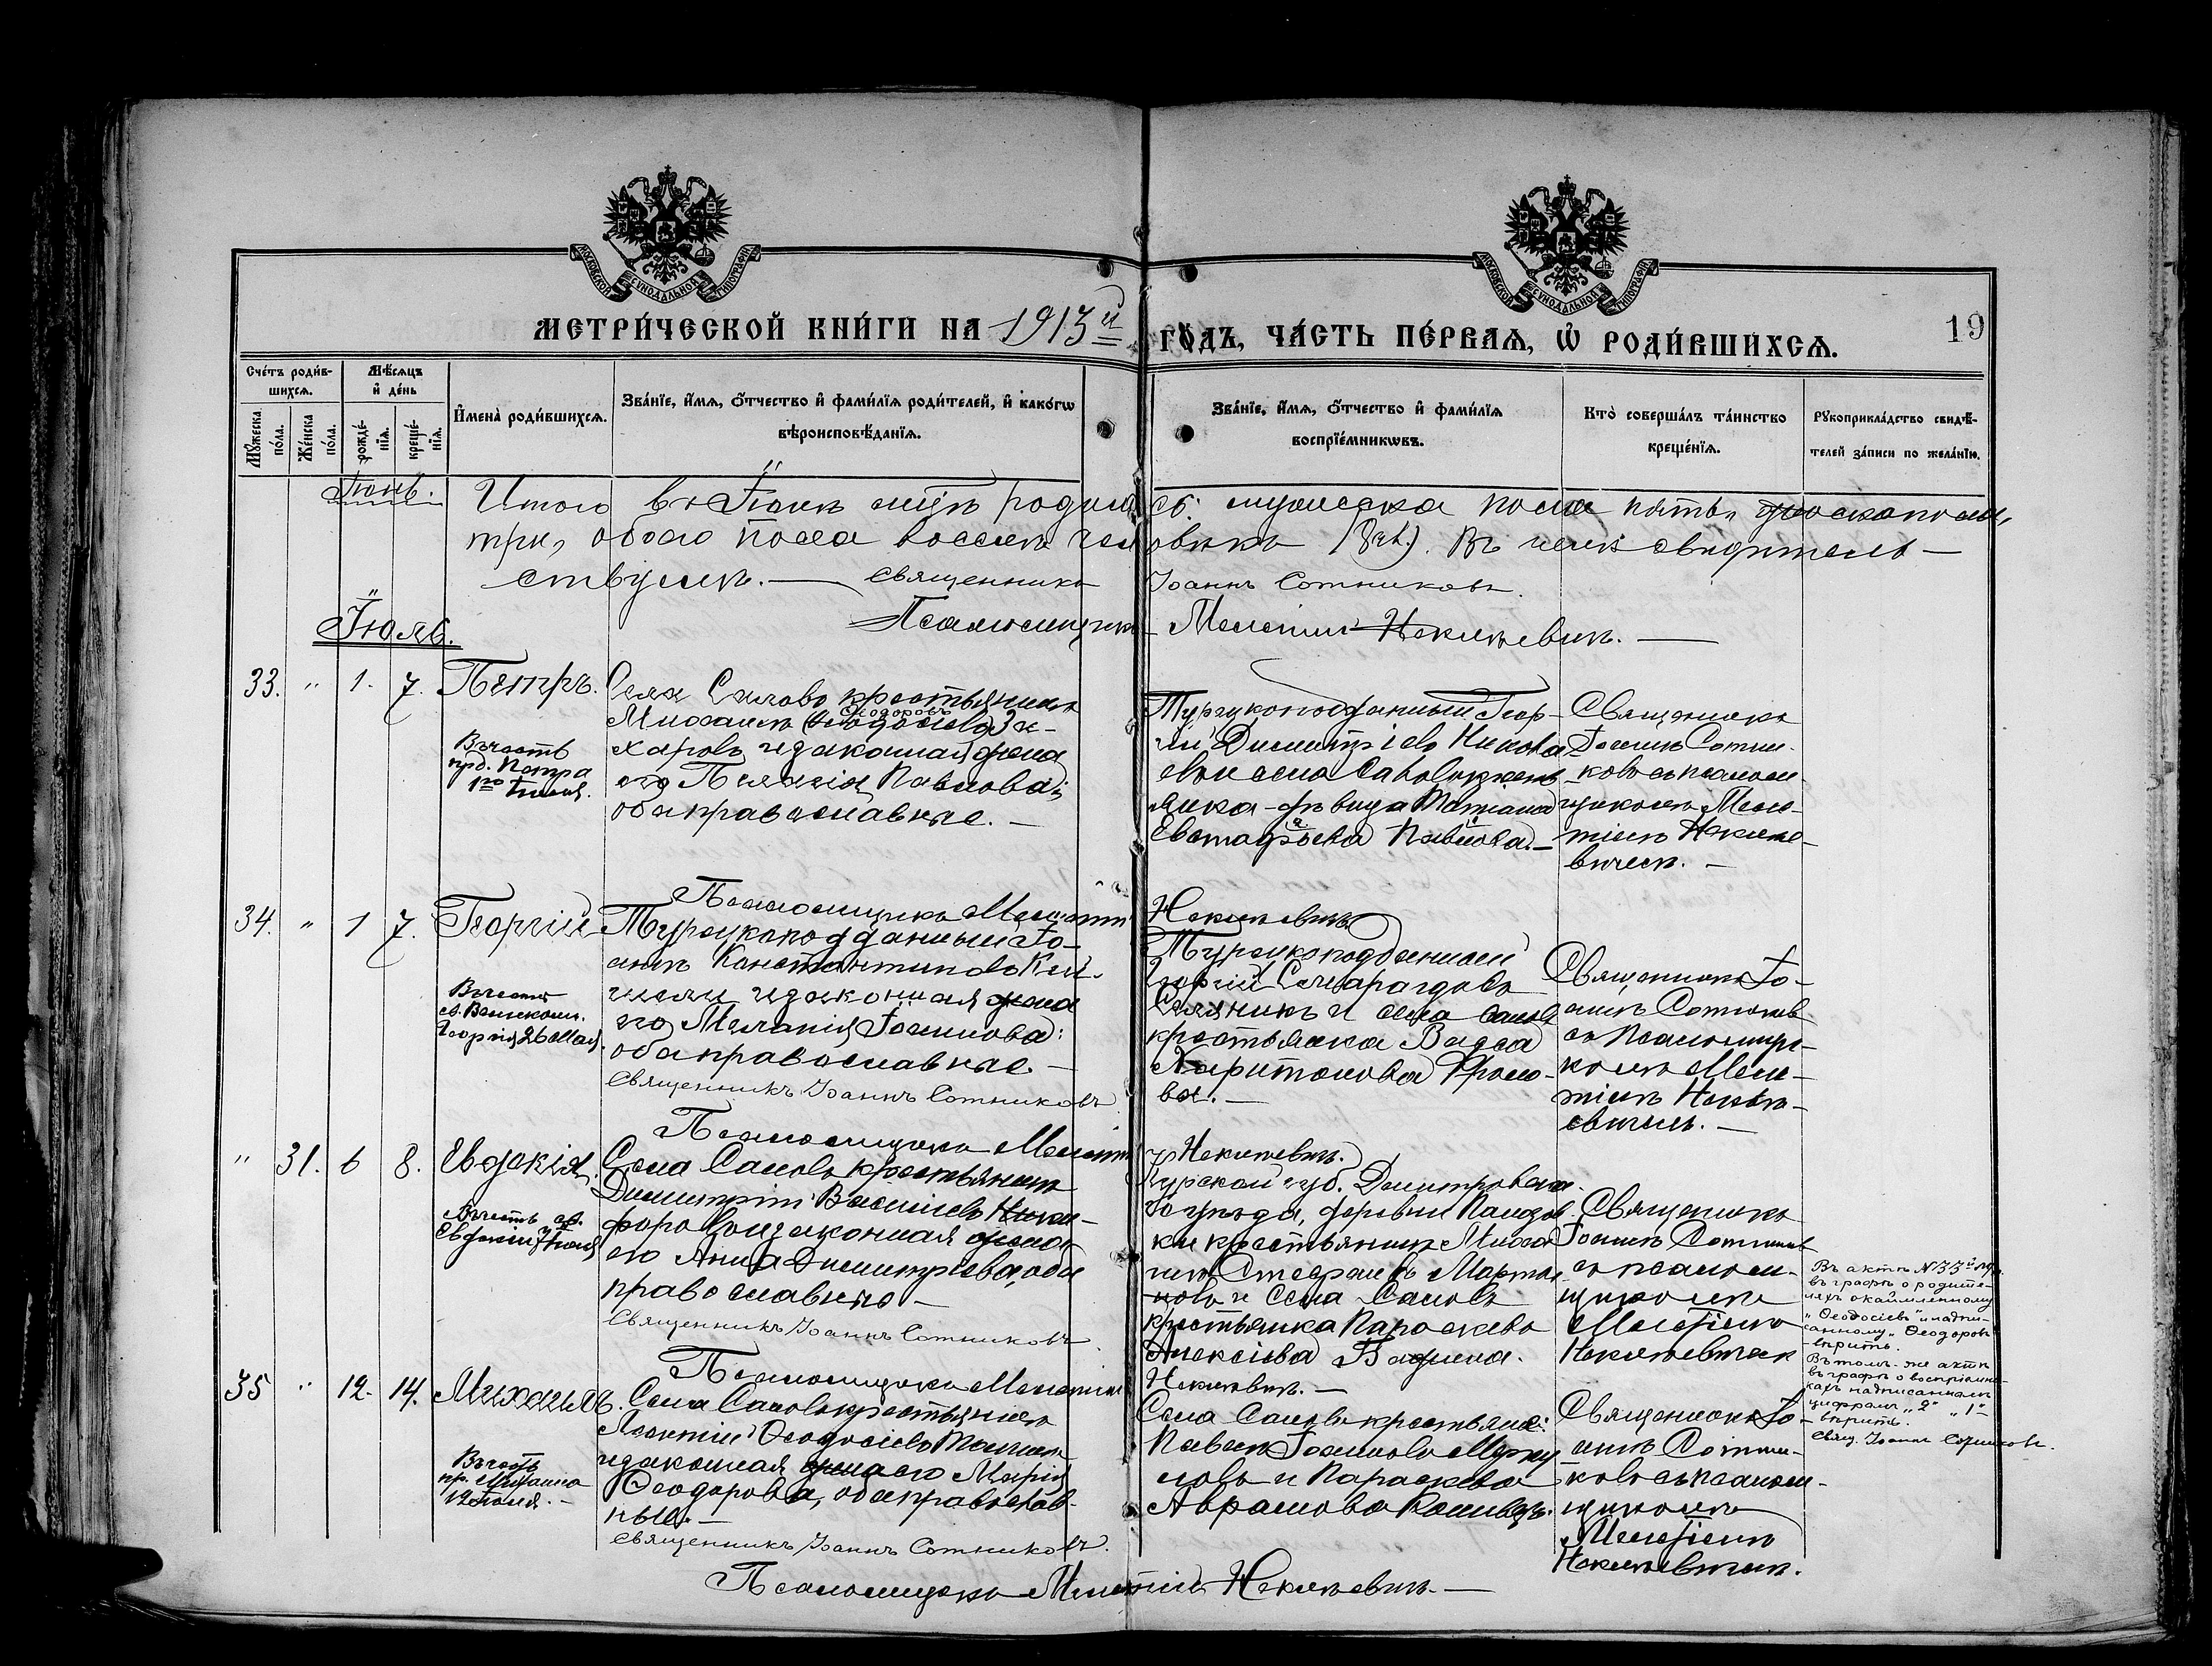 МОСКОВСКОЙ СѴНОДАЛЬНОЙ ТИПОГРАФІИ
МОСКОВСКОЙ СѴНОДАЛЬНОЙ ТИПОГРАФІИ
МЕТРИ́ЧЕСКОЙ КНИ́ГИ НА 1913й
ГО́ДЪ, ЧА́СТЬ ПЕ́РВАѦ, Ѽ РОДИ́ВШИХСѦ.
19
Сче́тъ роди́в-
шихсѧ.
Мꙋ́жеска по́ла.
Же́нска по́ла.
Мѣ́сѧцъ
и҆ де́нь
рожде́-
нїѧ.
креще́-
нїѧ.
И҆мена̀ роди́вшихсѧ.
Зва́нїе, и҆́мѧ, ѻ҆́тчество и҆ фами́лїѧ роди́телей, и҆ како́гѡ
вѣроисповѣ́данїѧ.
Зва́нїе, и҆́мѧ, ѻ҆́тчество и҆ фами́лїѧ
воспрїе́мникѡвъ.
Кто̀ соверша́лъ та́инство
креще́нїѧ.
Рꙋкоприкла́дство свидѣ́-
телей за́писи по жела́нїю.
Іюнь.
Итого въ Іюнѣ мцѣ родилось: мужеска пола пять, женска пола,
три, обоего пола восемь человѣкъ (8 ч.). Въ чемъ свидѣтель-
ствуемъ. — Священникъ Іоаннъ Сотниковъ.
Псаломщикъ Мелетій Неклѣевичъ. —
Іюль.
33. " 1. 7. Петръ.
Въ честь
прд. Петра
1го Іюля.
Села Саловъ крестьянинъ
Ѳеодоровъ
Михаилъ (Ѳеодосіевъ) За-
харовъ и законная жена
его Пелагія Павлова;
оба православные. —
Турецкоподданный Геор-
гій Димитріевъ Никола
евъ и села Саловъ кресть
янка - дѣвица Татіана
Евстафьева Павлова. —
Священникъ
Іоаннъ Сотни-
ковъ съ псалом-
щикомъ Меле-
тіемъ Неклѣе-
вичемъ. —
Псаломщикъ Мелетій Неклѣевичъ
34. " 1 7. Георгій
Въ честь
св. Великом.
Георгія 26 Мая.
Турецкоподданный Іо-
аннъ Константиновъ
и законная жена
его Меланія Іоаннова:
оба православные. —
Священникъ Іоаннъ Сотниковъ
Турецкоподданный
Георгій Смарагдовъ
и села Саловъ
крестьянка Васса
Харитонова Фроло-
ва. —
Священникъ Іо-
аннъ Сотниковъ
съ Псаломщи-
комъ Меле-
тіемъ Неклѣ-
евичемъ. —
Псаломщикъ Мелетій Неклѣевичъ.
" 31. 6 8. Евдокія.
Въ честь св.
Евдокіи 7 Іюля
Села Саловъ крестьянинъ
Димитрій Васильевъ Ники-
форовъ и законная жена
его Анна Димитріева, оба
православные —
Священникъ Іоаннъ Сотниковъ.
Курской губ. Дмитровска-
го уѣзда, деревни
крестьянинъ Миха-
илъ Стефановъ Марты-
новъ и села Саловъ
крестьянка Параскева
Алексіева
Священникъ
Іоаннъ Сотниковъ
съ псалом-
щикомъ
Мелетіемъ
Неклѣевичемъ
Въ актѣ № 33й
въ графѣ о родите-
ляхъ окаймленному
"Ѳеодосіевъ" и надпи-
санному "Ѳеодоровъ"
-вѣрить.
Въ томъ-же актѣ
въ графѣ о воспріемни-
кахъ надписаннымъ
цифрамъ "2" "1" -
-вѣрить.
Свящ. Іоаннъ Сотниковъ.
Псаломщикъ Мелетій Неклѣевичъ. —
35 " 12. 14. Михаилъ.
Въ честь
пр. Михаила
12 Іюля. —
Села Саловъ крестьянинъ
Леонтій Ѳеодосіевъ
и законная жена его Марія
Ѳеодорова, оба православ-
ные. —
Священникъ Іоаннъ Сотниковъ.
Села Саловъ крестьяне:
Павелъ Іоанновъ Марку
ловъ и Параскева
Аврамова
Священникъ Іо-
аннъ Сотни-
ковъ съ псалом-
щикомъ
Мелетіемъ
Неклѣевичемъ.
Псаломщикъ Мелетій Неклѣевичъ. —